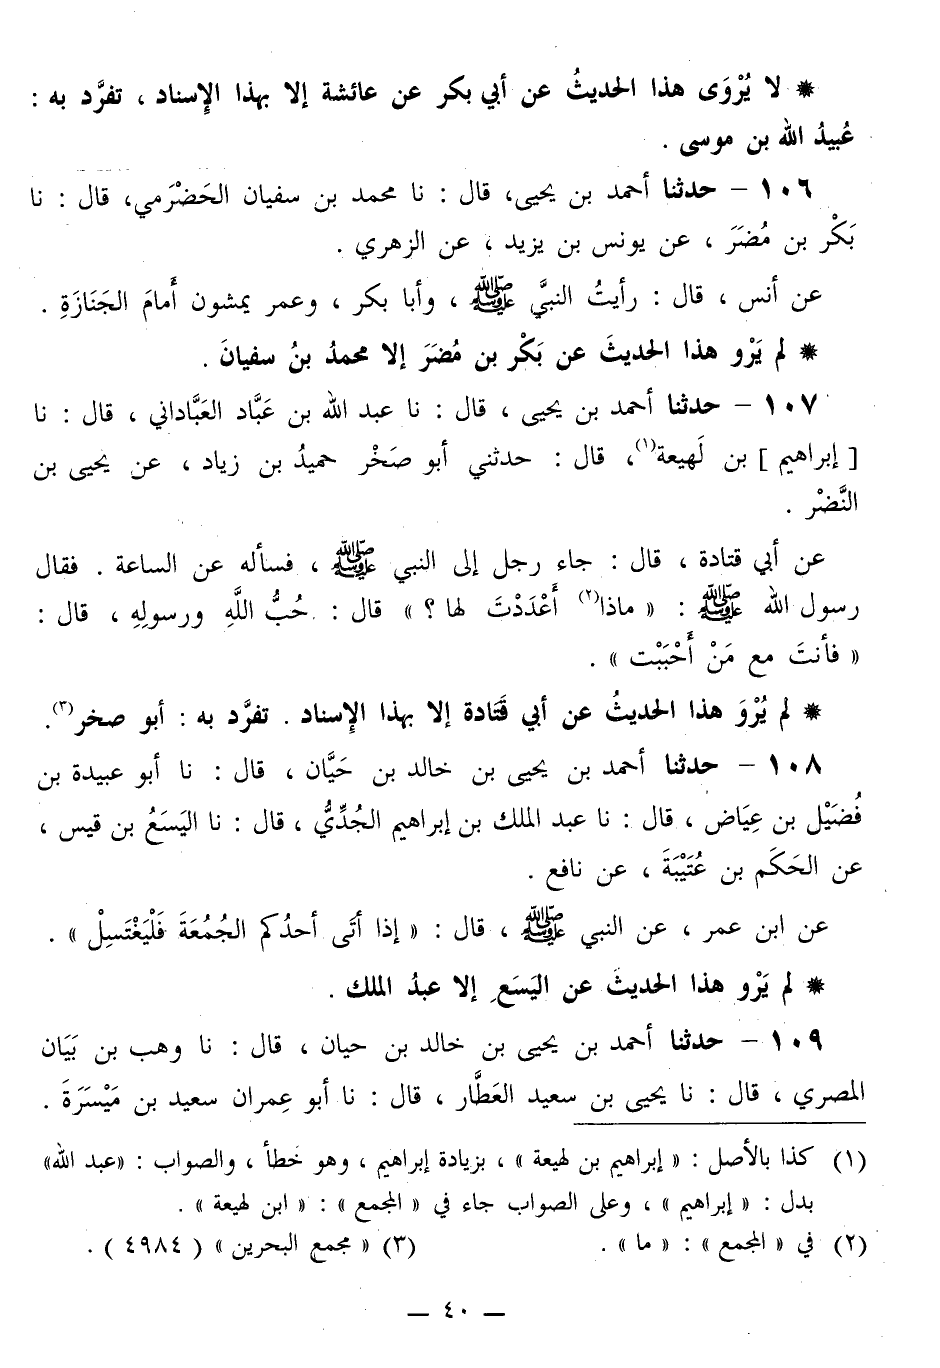 * لا يُرْوَى هذا الحديثُ عن أبي بكر عن عائشة إلا بهذا الإِسناد ، تفرَّد به :
عُبيدُ الله بن موسى .
١٠٦ – حدثنا أحمد بن يحيى، قال : نا محمد بن سفيان الحَضْرَمي، قال : نا
بَكْر بن مُضَرَ ، عن يونس بن يزيد ، عن الزهري .
عن أنس ، قال : رأيتُ النبيَّ ﷺ ، وأبا بكر ، وعمر يمشون أَمامَ الجَنَازَةِ .
* لم يَرْو هذا الحديثَ عن بَكْر بن مُضَرَ إلا محمدُ بنُ سفيانَ .
١٠٧ – حدثنا أحمد بن يحيى ، قال : نا عبد الله بن عَبَّاد العَبَّاداني ، قال : نا
[ إبراهيم ] بن لَهيعة(١)، قال : حدثني أبو صَخْر حميدُ بن زياد ، عن يحيى بن
النَّضْر .
عن أبي قتادة ، قال : جاء رجل إلى النبي ﷺ ، فسأله عن الساعة . فقال
رسول الله ﷺ : « ماذا(٢) أَعْدَدْتَ لها ؟ » قال : حُبُّ اللَّهِ ورسولِهِ ، قال :
« فأنتَ مع مَنْ أَحْبَبْت » .
* لم يُرْوَ هذا الحديثُ عن أبي قَتَادة إلا بهذا الإِسناد . تفرَّد به : أبو صخر(٣).
١٠٨ – حدثنا أحمد بن يحيى بن خالد بن حَيَّان ، قال : نا أبو عبيدة بن
فُضَيْل بن عِيَاض ، قال : نا عبد الملك بن إبراهيم الجُدِّيُّ ، قال : نا اليَسَعُ بن قيس ،
عن الحَكَم بن عُتَيْبَةَ ، عن نافع .
عن ابن عمر ، عن النبي ﷺ ، قال : « إذا أتَى أحدُكم الجُمُعَةَ فَلْيَغْتَسِلْ » .
* لم يَرْو هذا الحديثَ عن اليَسَعِ إلا عبدُ الملك .
١٠٩ – حدثنا أحمد بن يحيى بن خالد بن حيان ، قال : نا وهب بن بَيَان
المصري ، قال : نا يحيى بن سعيد العَطَّار ، قال : نا أبو عِمران سعيد بن مَيْسَرَةَ .
(١) كذا بالأصل : « إبراهيم بن لهيعة » ، بزيادة إبراهيم ، وهو خطأ ، والصواب : «عبد الله»
بدل : « إبراهيم » ، وعلى الصواب جاء في « المجمع » : « ابن لهيعة » .
(٢) في « المجمع » : « ما » . (٣) « مجمع البحرين » ( ٤٩٨٤ ) .
— ٤٠ —